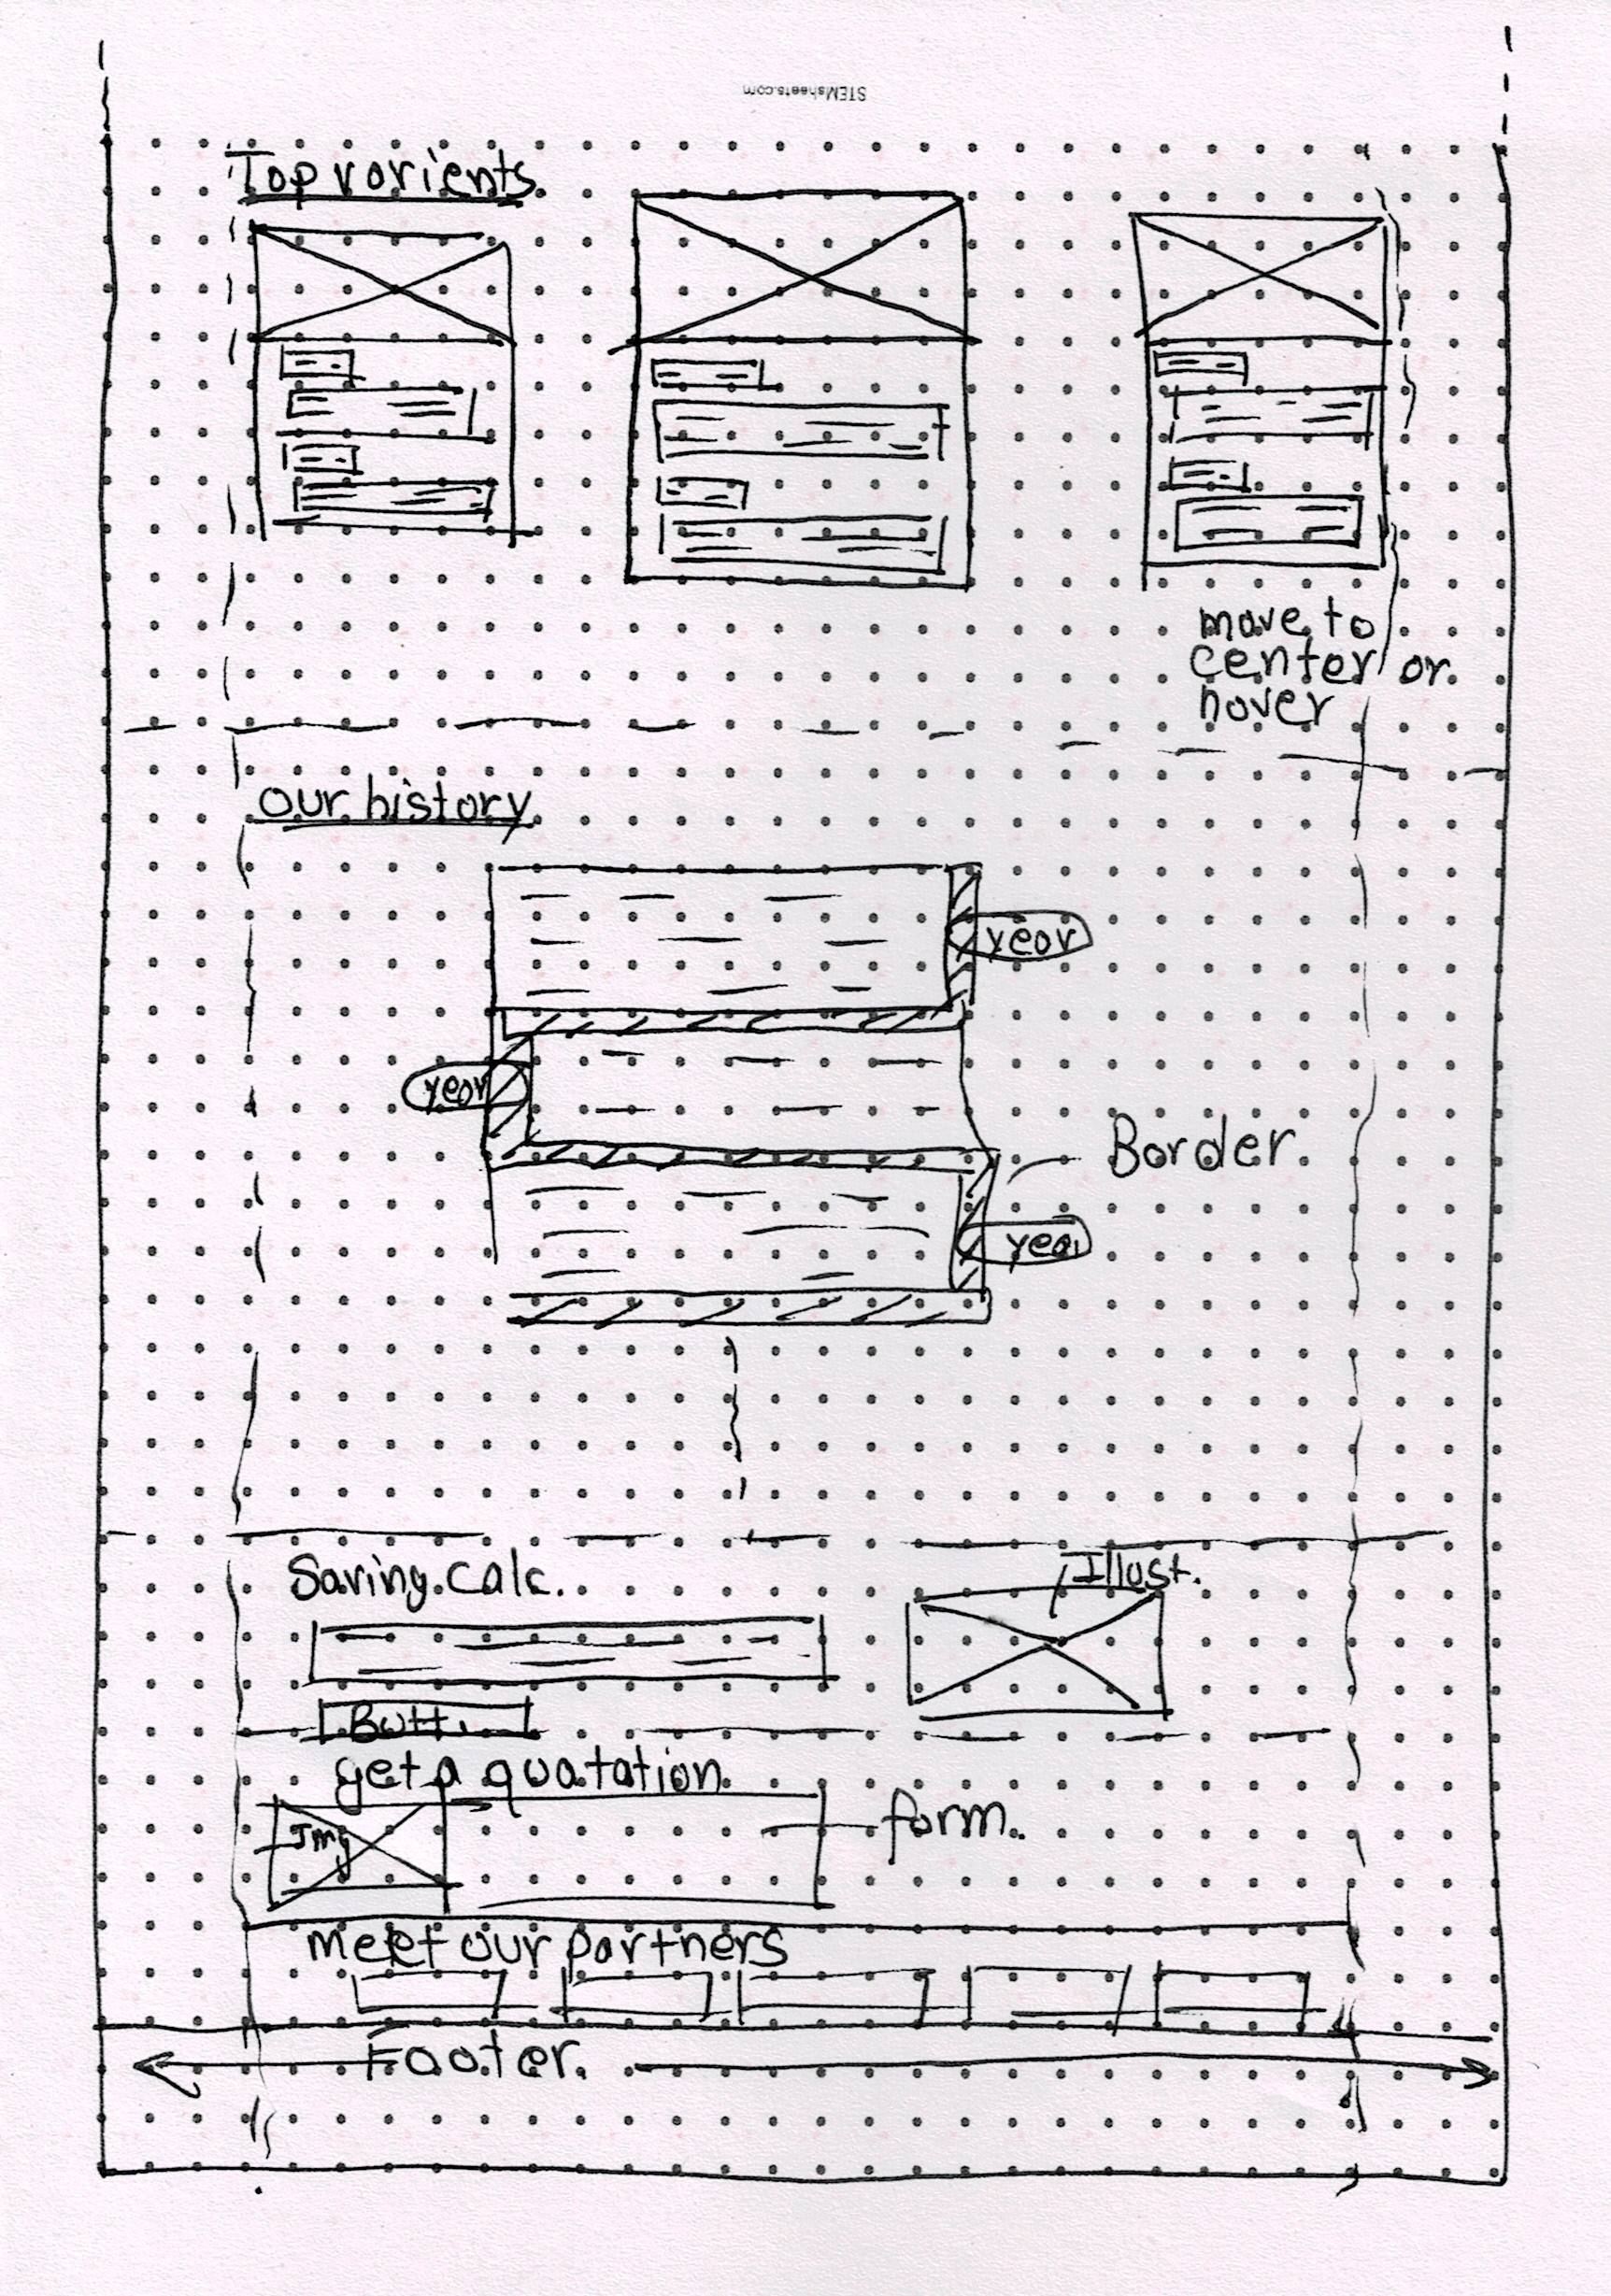 STEMsheets.com
Top varients
move to
center or
hover
Our history
year
year
Border
year
Saving Calc.
Illust.
Butt.
get a quatation
Img
form.
meet our partners
Footer.